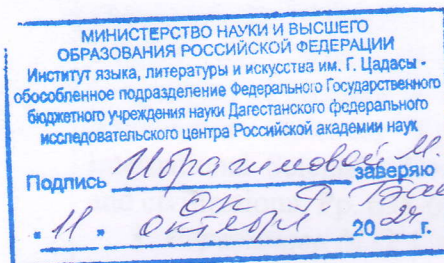 МИНИСТЕРСТВО НАУКИ И ВЫСШЕГО
ОБРАЗОВАНИЯ РОССИЙСКОЙ ФЕДЕРАЦИИ
Институт языка, литературы и искусства им. Г. Цадасы -
обособленное подразделение Федерального Государственного
бюджетного учреждения науки Дагестанского федерального
исследовательского центра Российской академии наук
Подпись Ибрагимовой М. заверяю
"11" октября 2024 г.